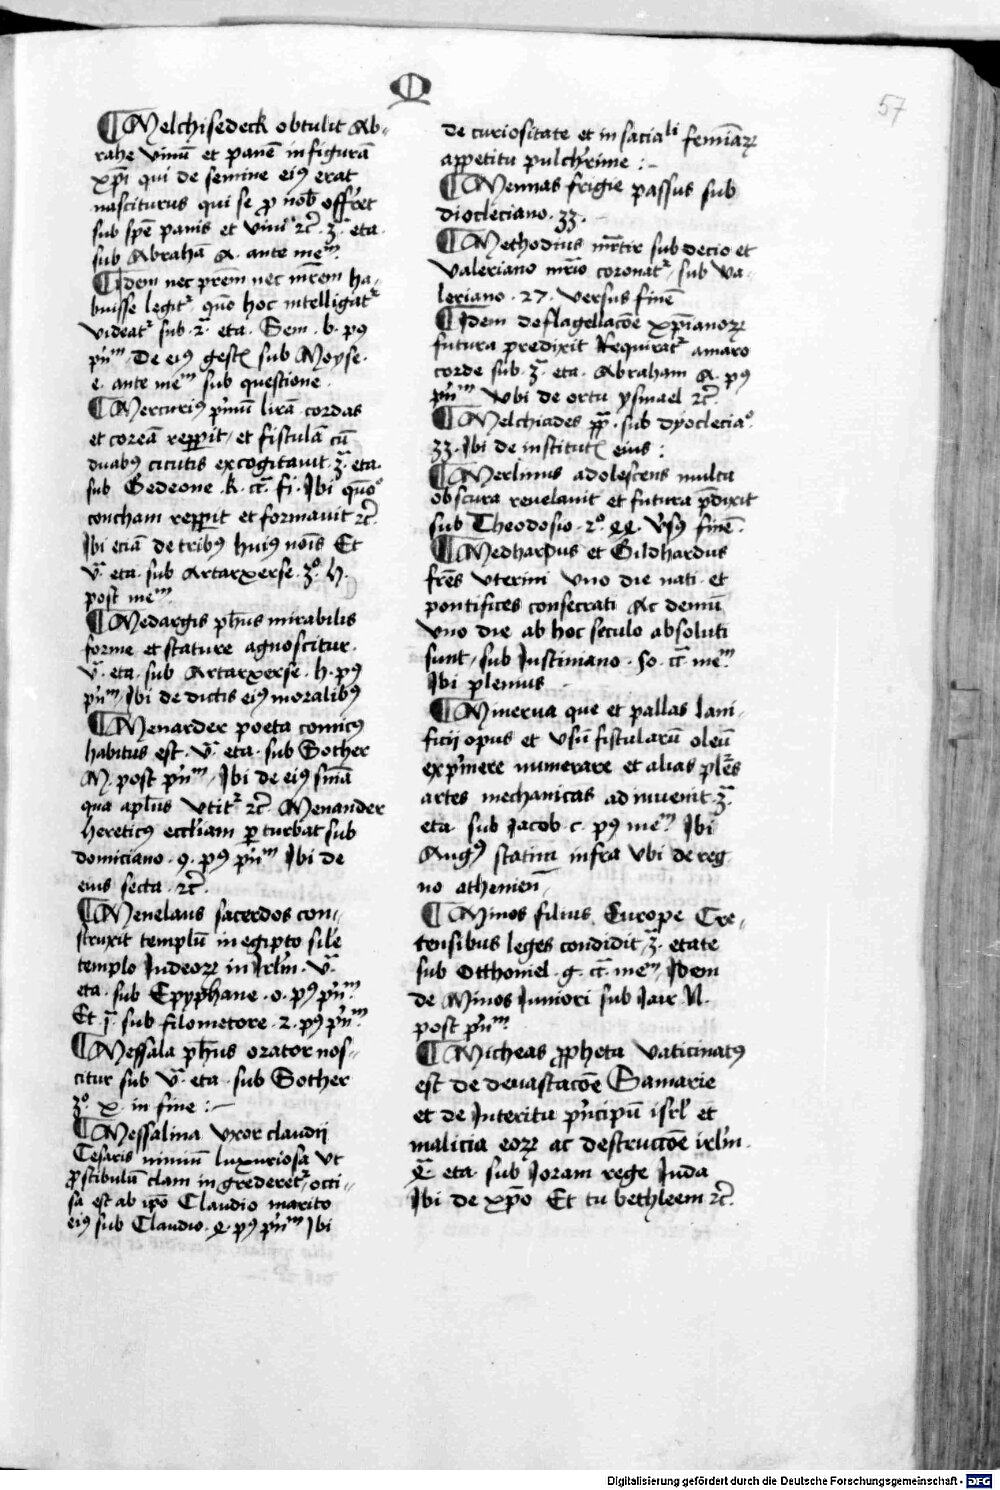 M
57
¶ Melchisedeck obtulit Ab-
rahe vinū et panē in figurā
xp̄i qui de semine ei9 erat
nasciturus qui se ꝓ nob̄ offerret
sub spē panis et vini rc̄. 3ᵃ. eta.
sub Abrahā A. ante meᵐ.
¶ Idem nec prēm nec mr̄em ha-
buisse legitʳ quō hoc intelligatʳ
videatʳ sub. 2ᵃ. eta. Sem. b. p9
pn̄ᵐ. De ei9 gest sub Moyse.
e. ante meᵐ sub questione.
¶ Mercuri9 pⁱmū lirā cordas
et coreā rep̲p̲it, et fistulā cū
duab9 cicutis excogitauit. 3ᵃ. eta.
sub Gedeone. k. cᵃ. fi. Ibi quōº
concham rep̲p̲it et formauit rc̄.
Ibi eciā de trib9 hui9 nōis Et
vᵃ. eta. sub Artarxerse. 3º. H.
post meᵐ
¶ Medargis ph̄us mirabilis
forme et stature agnoscitur.
vᵃ. eta. sub Artarxerse. h. p9
pn̄ᵐ, Ibi de dictis ei9 moralib9
¶ Menarder poeta comic9
habitus est. vᵃ. eta. sub Sother
M. post pn̄ᵐ, Ibi de ei9 sm̄a
qua apl̄us vtitʳ rc̄. Menander
hereticᵒ eccl̄iam p̲turbat sub
domiciano. 9. p9 pn̄ᵐ Ibi de
eius secta. rc̄.
¶ Menelaus sacerdos con-
struxit templū in egipto sil̄e
templo Iudeoꝝ in Irl̄m. vᵃ.
eta. sub Epyphane. o. p9 pn̄ᵐ.
Et. sub filometore. 2. p9 pn̄ᵐ.
¶ Messala ph̄us orator nos-
citur sub vᵃ. eta. sub Sother
3º. x. in fine :-
¶ Messalina vxor claudii
Cesaris nimiū luxuriosa vt
ꝓstibulū clam ingrederetʳ, occi-
sa est ab ip̄o Claudio marito
ei9 sub Claudio. p9 pn̄ᵐ Ibi
de curiositate et insaciali femīaꝝ
appetitu pulcherrime :-
¶ Mennas frigie passus sub
diocleciano. 33.
¶ Methodius mr̄tir sub decio et
Valeriano mr̄io coronatʳ, sub Va-
leriano. 27. versus finē
¶ Idem de flagellacōe xp̄ianoꝝ
futura predixit Requiratʳ amaro
corde sub. 3ᵃ. eta. Abraham A. p9
pn̄ᵐ Vbi de ortu ysmael rc̄.
¶ Melchiades pp̄. sub dyocleciaº.
33. Ibi de institut eius :
¶ Merlinus adolescens multa
obscura reuelauit et futura p̄dixit
sub Theodosio. 2º. vͤrs9 finē.
¶ Medhardus et Gildhardus
fr̄es vterini vno die nati. et
pontifices consecrati Ac demū
vno die ab hoc seculo absoluti
sunt, sub Iustiniano. 50. cᵃ. meᵐ.
Ibi plenius
¶ Minerua que et pallas lani-
ficij opus et vsū fistularū oleū
expⁱmere numerare et alias pl̄es
artes mechanicas adinuenit. 3ᵃ.
eta. sub Iacob. c. p9 meᵐ. Ibi
Aug9 statim infra vbi de reg
no athenien̄.
¶ Minos filius Europe Cre-
tensibus leges condidit, 3ᵃ. etate
sub Otthoniel. g. cᵃ. meᵐ, Idem
de Minos Iuniori sub Iair. N.
post pn̄ᵐ.
¶ Micheas ꝓpheta vaticinat9
est de deuastacōe Samarie
et de Interitu pⁱncipū isrl̄ et
malicia eoꝝ ac destruccōe irl̄m.
eta. sub Ioram rege Iuda
Ibi de xp̄o Et tu bethleem rc̄.
Digitalisierung gefördert durch die Deutsche Forschungsgemeinschaft - DFG